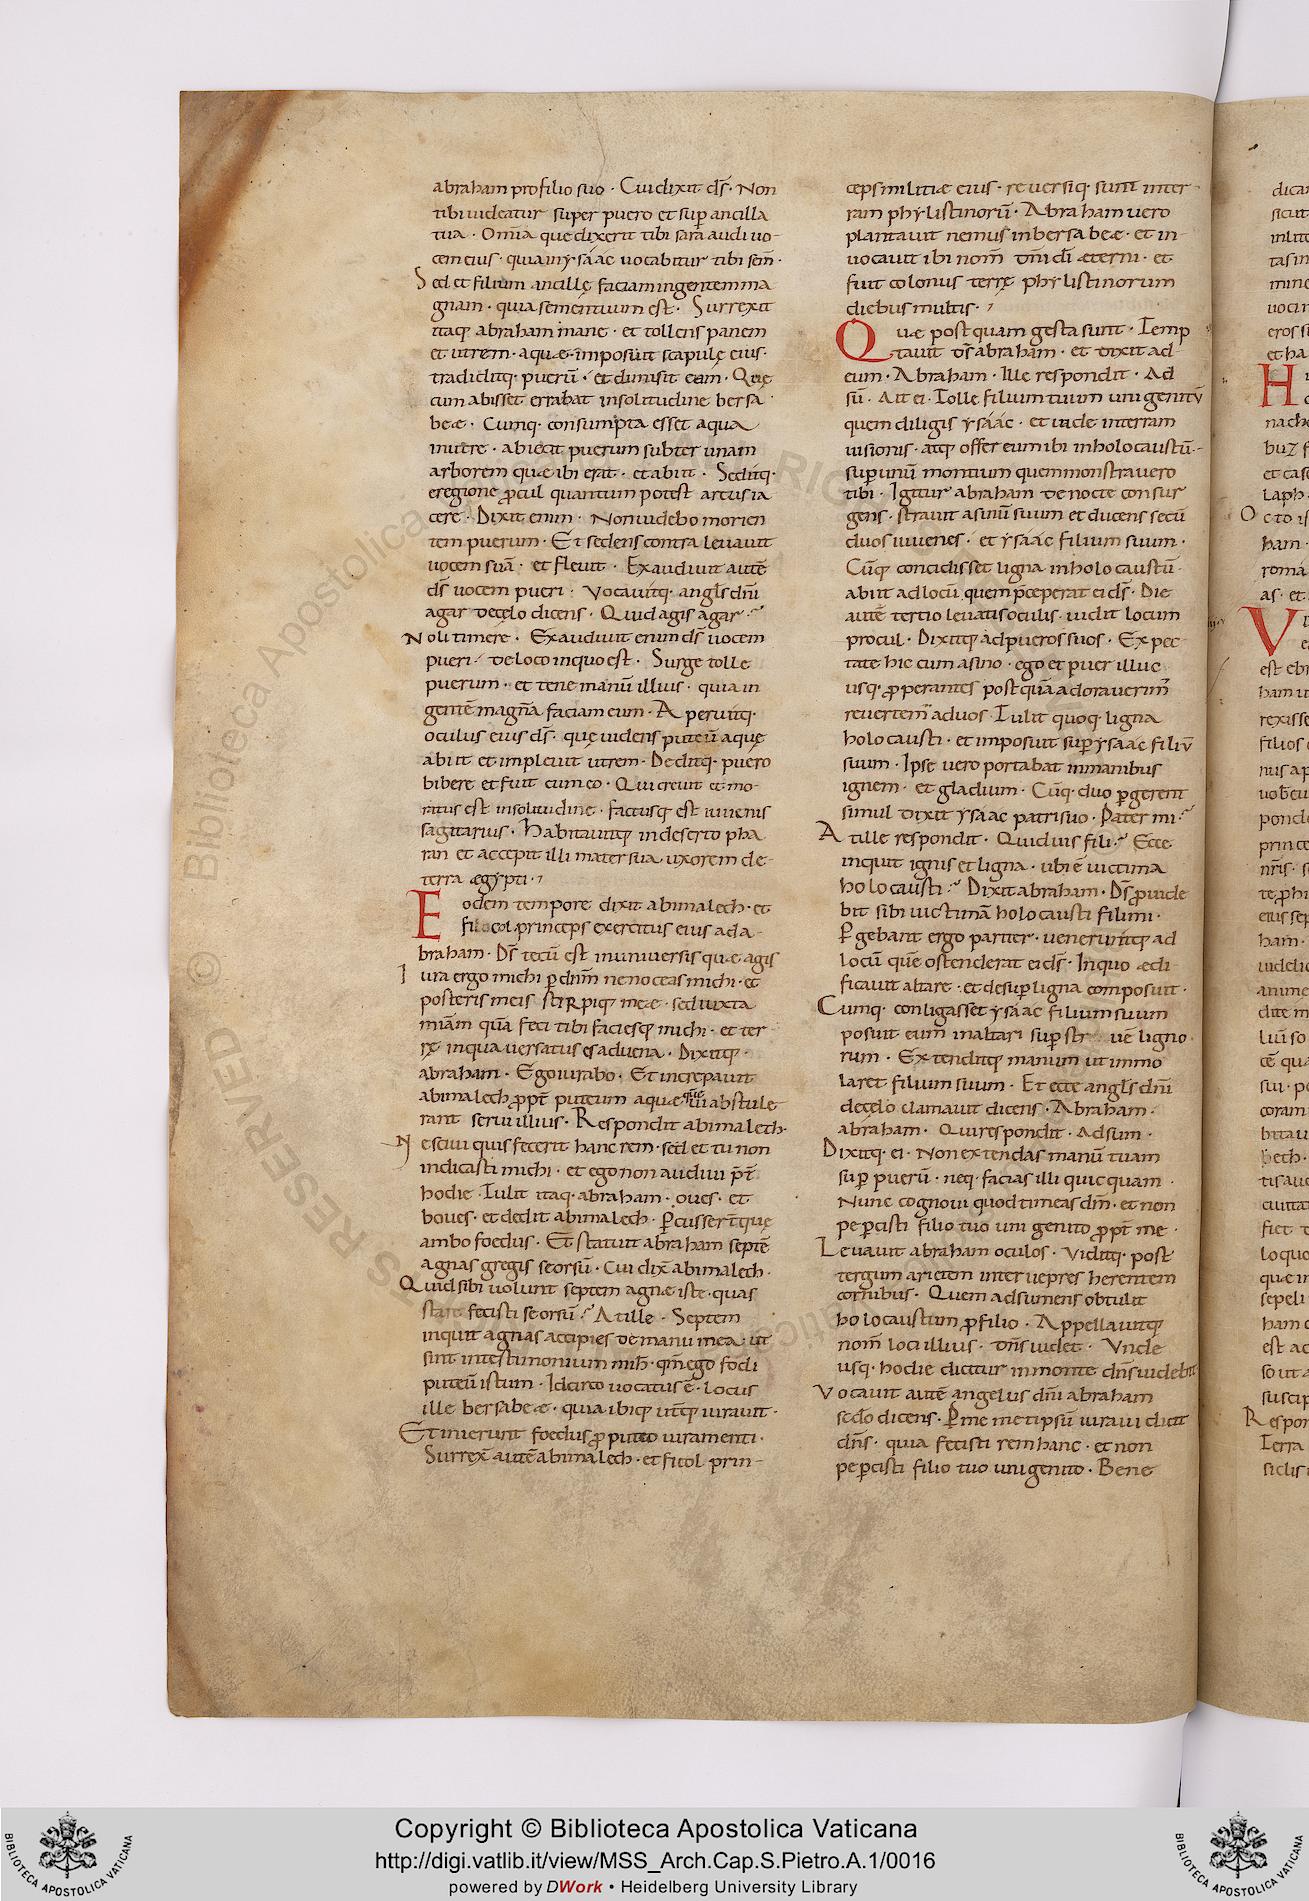 abraham pro filio suo · Cui dixit d̄s · Non
tibi uideatur super puero et sup̄ ancilla
tua · Om̄ia que dixerit tibi sara audi uo-
cem eius · quia in ysáác uocabitur tibi sem̄ ·
Sed et filium ancille faciam ingentem ma
gnam · quia semen tuum est · Surrexit
itaq· abraham mane · et tollens panem
et utrem · aquæ · imposuit scapulę eius ·
tradiditq· puerū · et dimisit eam · Quę
cum abisset errabat in solitudine bersa
beæ · Cumq· consumpta esset aqua
in utre · abiecit puerum subter unam
arborem quæ ibi erat · et abiit · Seditq·
e regione p̄cul quantum potest arcus ia
cere · Dixit enim · Non uidebo morien
tem puerum · Et sedens contra leuauit
uocem suā · et fleuit · Exaudiuit autē
d̄s uocem pueri · Vocauitq· angl̄s dn̄i
agar de cęlo dicens · Quid agis agar ·
Noli timere · Exaudiuit enim d̄s uocem
pueri · de loco in quo est · Surge tolle
puerum · et tene manū illius · quia in
gentē magnā faciam eum · Aperuitq·
oculus eius d̄s · quę uidens puteū aquę
abiit et impleuit utrem · Deditq· puero
bibere et fuit cum eo · Qui creuit et mo-
ratus est in solitudine · factusq· est iuuenis
sagitarius · Habitauitq· in deserto pha
ran et accepit illi mater sua uxorem de-
terra ægypti ·
Eodem tempore dixit abimalech · et
ficol princeps exercitus eius ad a-
braham · D̄s tecū est in uniuersis quæ agis
Iura ergo michi p̄ dn̄m ne noceas michi · et
posteris meis stirpiq· meæ · sed iuxta
miām quā feci tibi facies q· michi · et ter
rę in qua uersatus es aduena · Dixitq·
abraham · Ego iurabo · Et increpauit
abimalech p̄pt̄ puteum aquæ quē ui abstule
rant serui illius · Respondit abimalech ·
Nesciui quis fecerit hanc rem · sed et tu non
indicasti michi · et ego non audiui p̄t̄
hodie · Tulit itaq· abraham · oues · et
boues · et dedit abimalech · p̄cusser̄tque
ambo foedus · Et statuit abraham septē
agnas gregis seorsū · Cui dix̄ abimalech ·
Quid sibi uolunt septem agnæ iste · quas
stare fecisti seorsū · At ille · Septem
inquit agnas accipies de manu mea · ut
sint in testimonium mih̄ · qm̄ ego fodi
puteū istum · Idcirco uocatus ē · locus
ille bersabeæ · quia ibiq· ut̄q· iurauit ·
Et inierunt foedus p̄ puteo iuramenti ·
Surrex̄ autē abimalech · et ficol prin-
ceps militiæ eius · reuersiq· sunt in ter
ram phylistinorū · Abraham uero
plantauit nemus in bersabeæ · et in-
uocauit ibi nom̄ dn̄i dī æterni · et
fuit colonus terrę phylistinorum
diebus multis ·
Quæ post quam gesta sunt · Temp
tauit d̄s abraham · et dixit ad
eum · Abraham · Ille respondit · Ad
sū · Ait ei · Tolle filium tuum unigenitū
quem diligis ysáác · et uade in terram
uisionis · atq· offer eum ibi in holocaustū ·
sup̄ unū montium quem monstrauero
tibi · Igitur abraham de nocte consur
gens · strauit asinū suum et ducens secū
duos iuuenes · et ysáác filium suum ·
Cūq· concidisset ligna in holocaustū
abiit ad locū quem p̄ceperat ei d̄s · Die
autē tertio leuatis oculis · uidit locum
procul · Dixitq· ad pueros suos · Expec
tate hic cum asino · ego et puer illuc
usq· p̄perantes postquā adorauerim̄
reuertem̄ ad uos · Tulit quoq· ligna
holocausti · et imposuit sup̄ ysaac filiū
suum · Ipse uero portabat in manibus
ignem · et gladium · Cūq· duo p̄gerent
simul dixit ysaac patri suo · Pater mi ·
At ille respondit · Quid uis fili · Ecce
inquit ignis et ligna · ubi ē uictima
holocausti · Dixit abraham · D̄s p̄uide
bit sibi uictimā holocausti fili mi ·
P̄gebant ergo pariter · ueneruntq· ad
locū quē ostenderat ei d̄s · In quo ædi
ficauit altare · et desup̄ ligna composuit ·
Cumq· conligasset ysáác filium suum
posuit eum in altari sup̄ str uē ligno
rum · Extenditq· manum ut immo
laret filium suum · Et ecce angl̄s dn̄i
de cęlo clamauit dicens · Abraham ·
abraham · Qui respondit · Adsum ·
Dixitq· ei · Non extendas manū tuam
sup̄ puerū · neq· facias illi quicquam
Nunc cognoui quod timeas dm̄ · et non
pep̄cisti filio tuo uni genito p̄pt̄ me ·
Leuauit abraham oculos · Viditq· post
tergum arietem inter uepres herentem
cornibus · Quem adsumens obtulit
holocaustum p̄ filio · Appellauitq·
nom̄ loci illius · dn̄s uidet · Vnde
usq· hodie dicitur in monte dn̄s uidebit
Vocauit autē angelus dn̄i abraham
sedo dicens · P̄ me metipsū iuraui dicit
dn̄s · quia fecisti rem hanc · et non
pep̄cisti filio tuo unigenito · Bene
Copyright © Biblioteca Apostolica Vaticana
http://digi.vatlib.it/view/MSS_Arch.Cap.S.Pietro.A.1/0016
powered by DWork • Heidelberg University Library